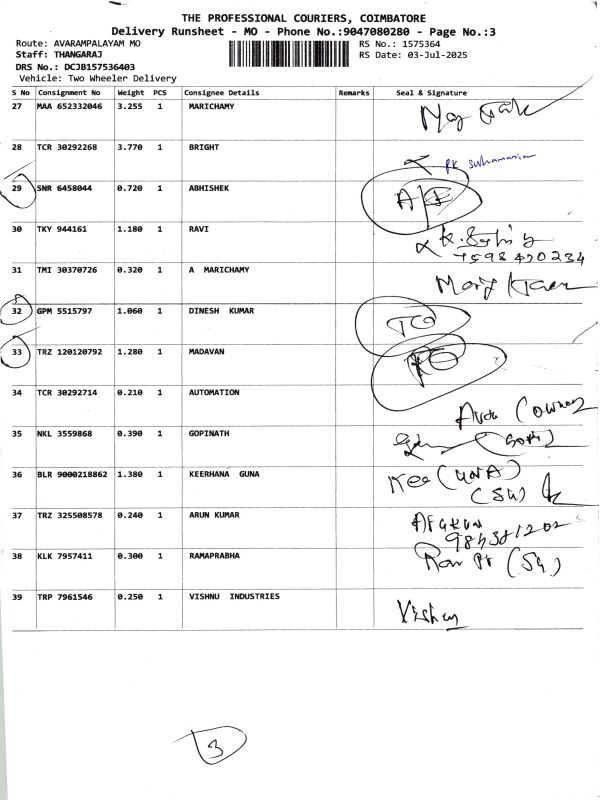 THE PROFESSIONAL COURIERS, COIMBATORE
Delivery Runsheet - MO - Phone No.:9047080280 - Page No.:3
Route: AVARAMPALAYAM MO RS No.: 1575364
Staff: THANGARAJ RS Date: 03-Jul-2025
DRS No.: DCJB157536403
Vehicle: Two Wheeler Delivery
S No Consignment No Weight PCS Consignee Details Remarks Seal & Signature
27 MAA 652332046 3.255 1 MARICHAMY
28 TCR 30292268 3.770 1 BRIGHT
29 SNR 6458044 0.720 1 ABHISHEK
30 TKY 944161 1.180 1 RAVI
31 TMI 30370726 0.320 1 A MARICHAMY
32 GPM 5515797 1.060 1 DINESH KUMAR
33 TRZ 120120792 1.280 1 MADAVAN
34 TCR 30292714 0.210 1 AUTOMATION
35 NKL 3559868 0.390 1 GOPINATH
36 BLR 9000218862 1.380 1 KEERHANA GUNA
37 TRZ 325508578 0.240 1 ARUN KUMAR
38 KLK 7957411 0.300 1 RAMAPRABHA
39 TRP 7961546 0.250 1 VISHNU INDUSTRIES
3